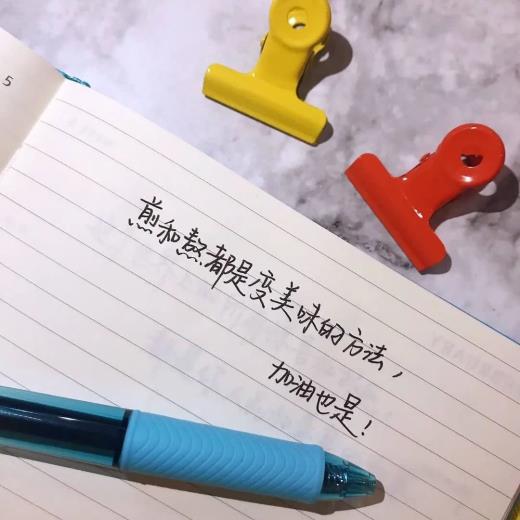 5
煎和熬都是变美味的方法，
加油也是！